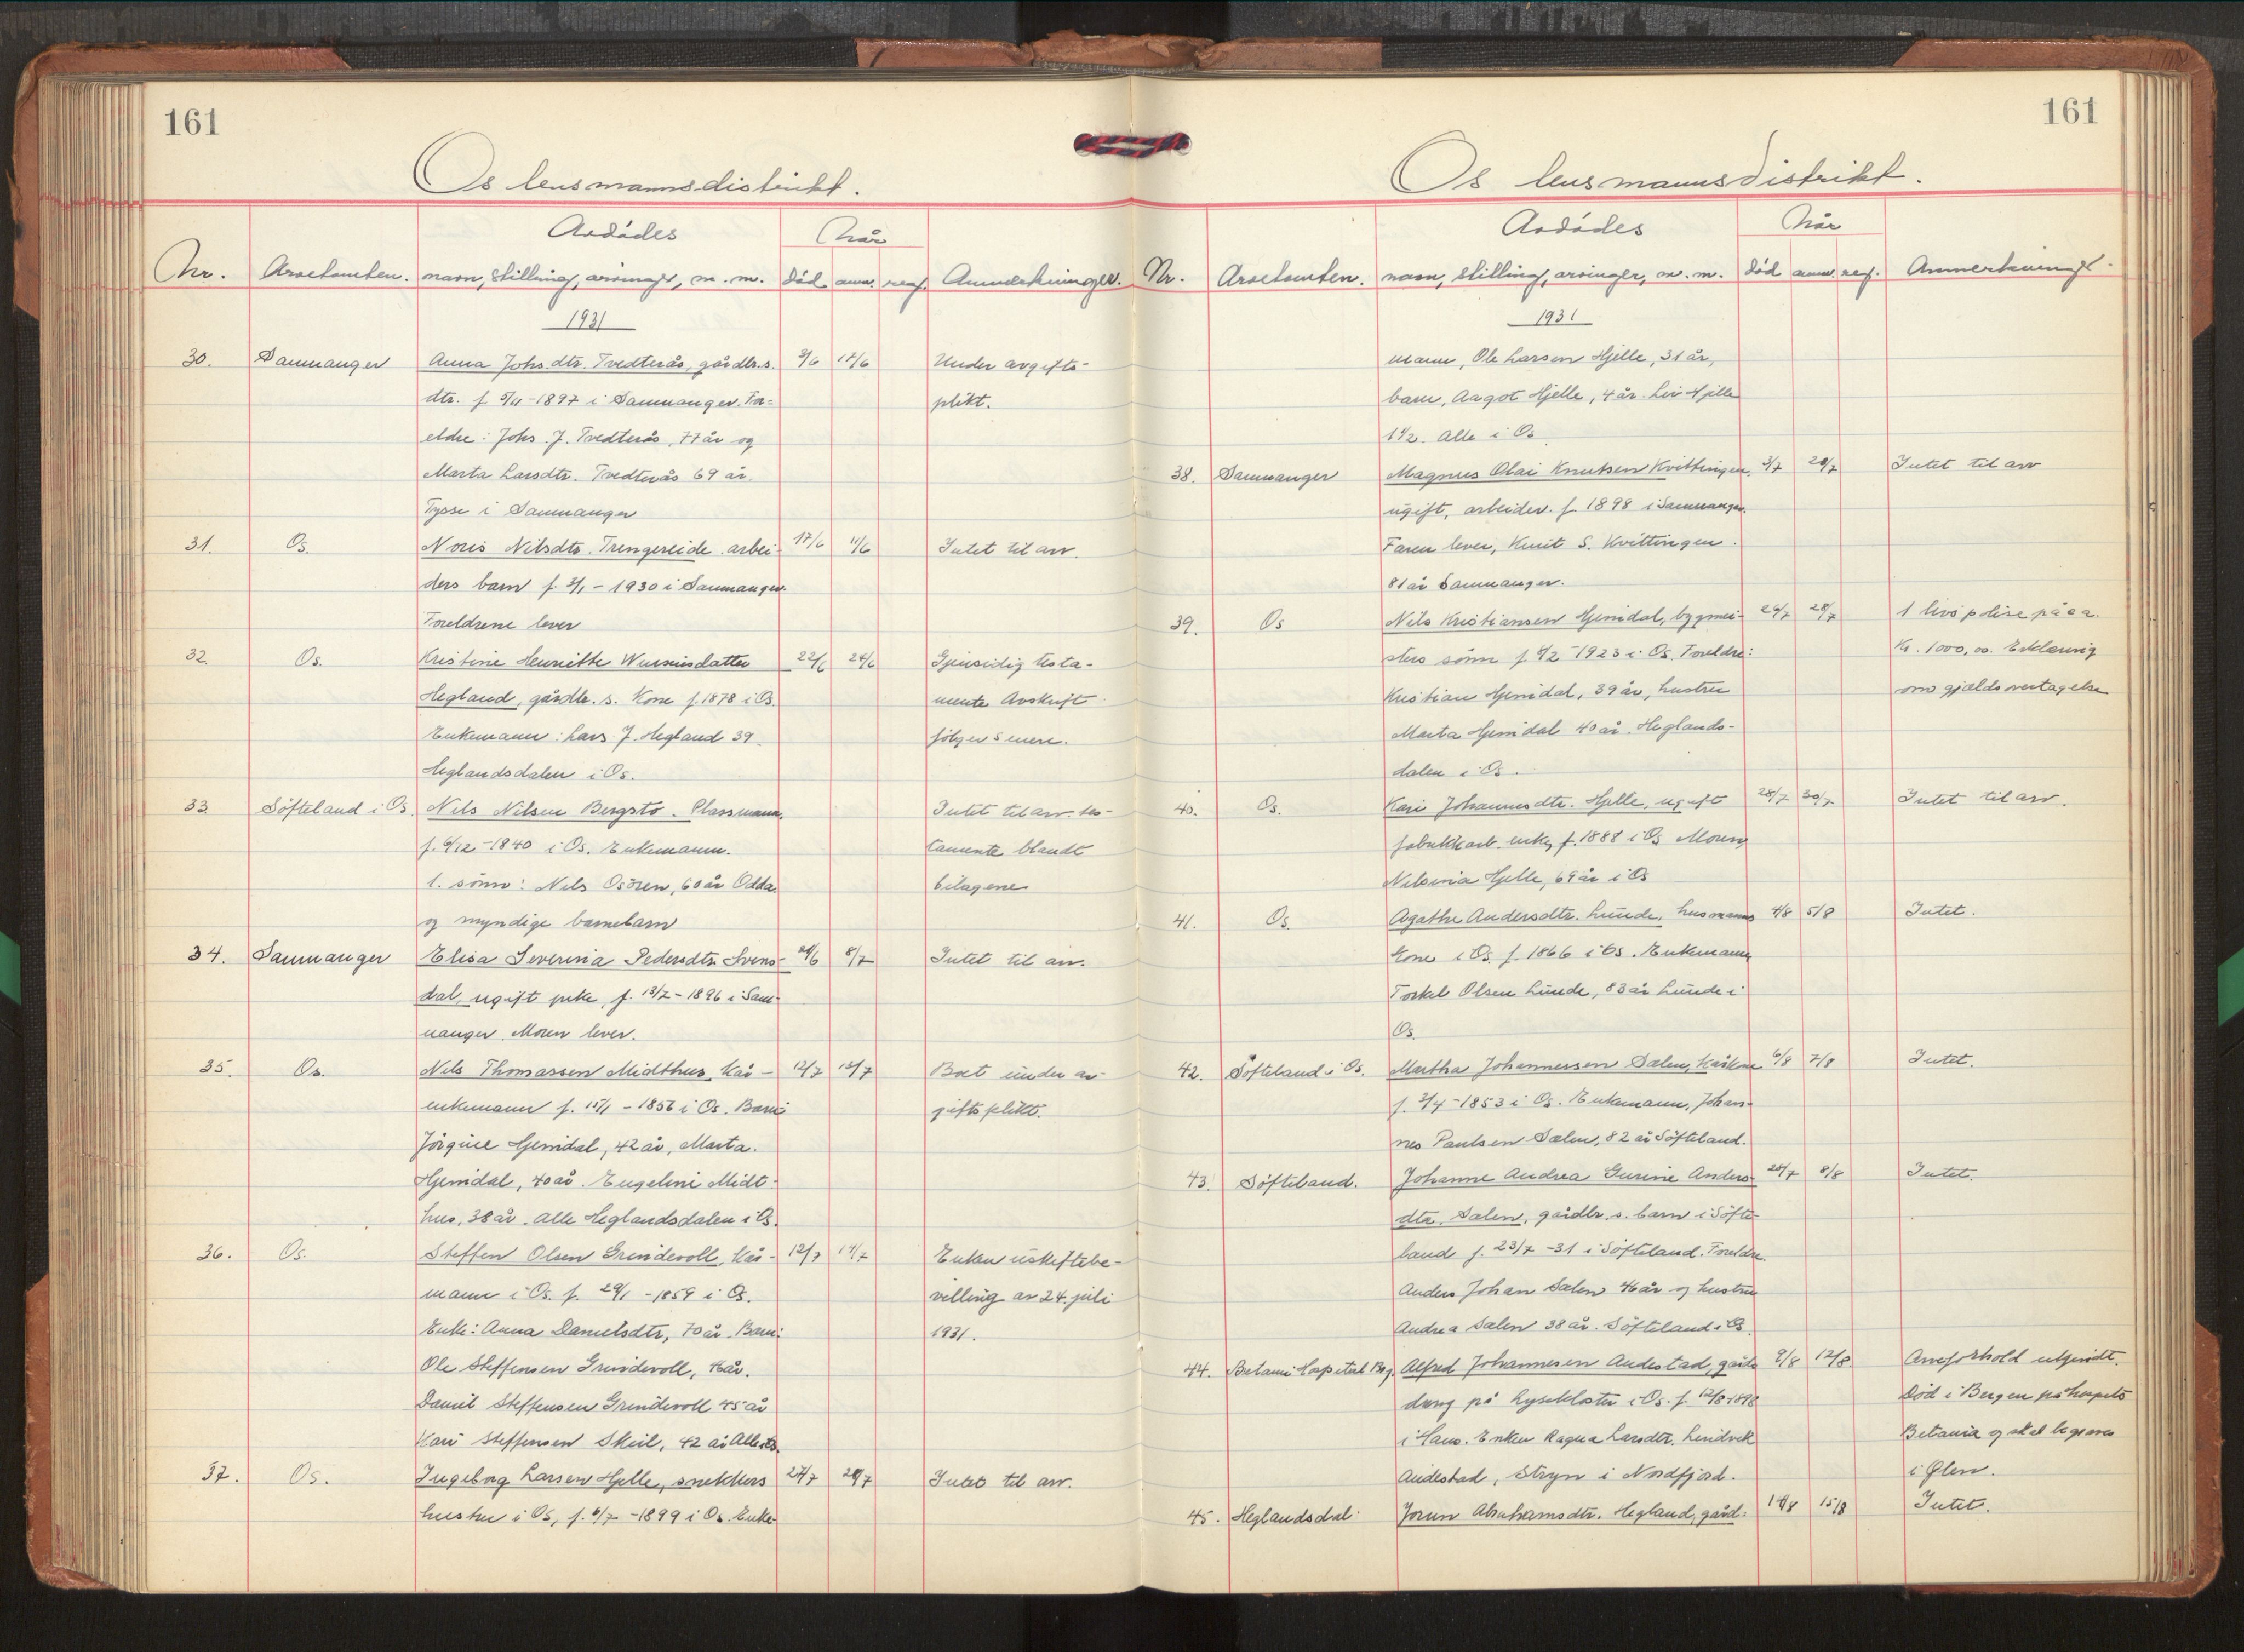 161
Os lensmannsdistrikt.
Avdødes
Når
Nr. Avsetomten. navn, stilling, arvinger, m.m. død anm. reg. Anmerkninger.
1931
30. Samnanger Anna Johs.dtr. Tvedterås, gårdbr.s. 9/6 17/6 Under avgifts-
dtr. f. 5/11-1897 i Samnanger. For- plikt.
eldre: Johs. J. Tvedterås, 77 år og
Marta Larsdtr. Tvedterås 69 år.
Tysse i Samnanger
31. Os. Noris Nilsdtr. Trengereide arbei- 17/6 Intet til arv.
ders barn f. 3/1-1930 i Samnanger.
Foreldrene lever
32. Os. Kristine Henriette datter 22/6 24/6 Gjensidig testa-
Hegland, gårdbr.s. Kone f. 1878 i Os. mente Avskrift
Enkemann: Lars J. Hegland 39. følger senere.
Heglandsdalen i Os.
33. Søfteland i Os. Nils Nilsen Bergstø. Plassmann, Intet til arv. tes-
f. 6/12-1840 i Os. Enkemann. tamente blandt
1. sønn: Nils Osøren, 60 år Odda bilagene
og myndige barnebarn
34. Samnanger Elisa Severina Pedersdtr. Svens- 8/7 Intet til arv.
dal, ugift pike, f. 13/7-1896 i Sam-
nanger. Moren lever.
35. Os. Nils Thomassen Midthus, Kår- 12/7 13/7 Boet under av-
enkemann f. 15/1-1856 i Os. Barn: giftsplikt.
Jørgine Hjemdal, 42 år, Marta.
Hjemdal, 40 år. Engeline Midt-
hus, 38 år. Alle Heglandsdalen i Os.
36. Os. Steffen Olsen Grindevoll, Kår- 12/7 14/7 Enken uskiftebe-
mann i Os. f. 29/1-1859 i Os. villing av 24. juli
Enke: Anna Danielsdtr, 70 år. Barn: 1931.
Ole Steffensen Grindevoll, 46 år.
Daniel Steffensen Grindevoll 45 år
Kari Steffensen Skeil, 42 år Alle i Os.
37. Os. Ingeborg Larsen Hjelle, snekkers 27/7 28/7 Intet til arv.
hustru i Os, f. 6/7-1899 i Os. Enke-
161
Os lensmannsdistrikt.
Avdødes
Når
Nr. Avsetomten. navn, stilling, arvinger, m.m. død anm. reg. Anmerkninger
1931
mann, Ole Larsen Hjelle, 31 år,
barn, Aagot Hjelle, 4 år. Liv Hjelle
1 1/2. Alle i Os
38. Samnanger Magnus Olai Knutsen Kvittingen, 3/7 20/7 Intet til arv
ugift, arbeider. f. 1898 i Samnanger.
Faren lever, Knut S. Kvittingen.
81 år Samnanger.
39. Os Nils Kristiansen Hjemdal, bygmei- 26/7 28/7 1 livspolise på ca.
sters sønn f. 4/2-1923 i Os. Foreldre: Kr. 1000,00. Erklæring
Kristian Hjemdal, 39 år, hustru om gjældsovertagelse
Marta Hjemdal 40 år. Heglands-
dalen i Os.
40. Os. Kari Johannesdtr. Hjelle, ugift 28/7 30/7 Intet til arv.
fabrikkarb. enke, f. 1888 i Os Moren,
Nilsina Hjelle, 69 år i Os
41. Os. Agathe Andersdtr. Lunde, husmanns 4/8 5/8 Intet.
Kone i Os. f. 1866 i Os. Enkemann
Torkel Olsen Lunde, 83 år Lunde i
Os.
42. Søfteland i Os. Martha Johannessen Dalen, Kårkone 6/8 7/8 Intet.
f. 3/4-1853 i Os. Enkemann, Johan-
nes Paulsen Dalen, 82 år Søfteland.
43. Søfteland. Johanne Andrea Gurine Anders- 28/7 8/8 Intet.
dtr. Dalen, gårdbr.s. barn i Søfte-
land f. 23/7-31 i Søfteland. Foreldre.
Anders Johan Dalen 46 år og hustru
Andrea Dalen 38 år. Søfteland i Os.
44. Betani Hospital Brg. Alfred Johannesen Audestad, gårds 8/8 12/8. Arveforhold ukjendt.
dreng på Lysekloster i Os. f. 12/8 1898 Død i Bergen på Hospits
i Haus. Enken Ragna Larsdtr. Lendvik Betania og skal begraves
Audestad, Stryn i Nordfjord. i Ølen.
45. Heglandsdal Jorun Abrahamsdtr. Hegland, gård- 14/8 15/8 Intet.